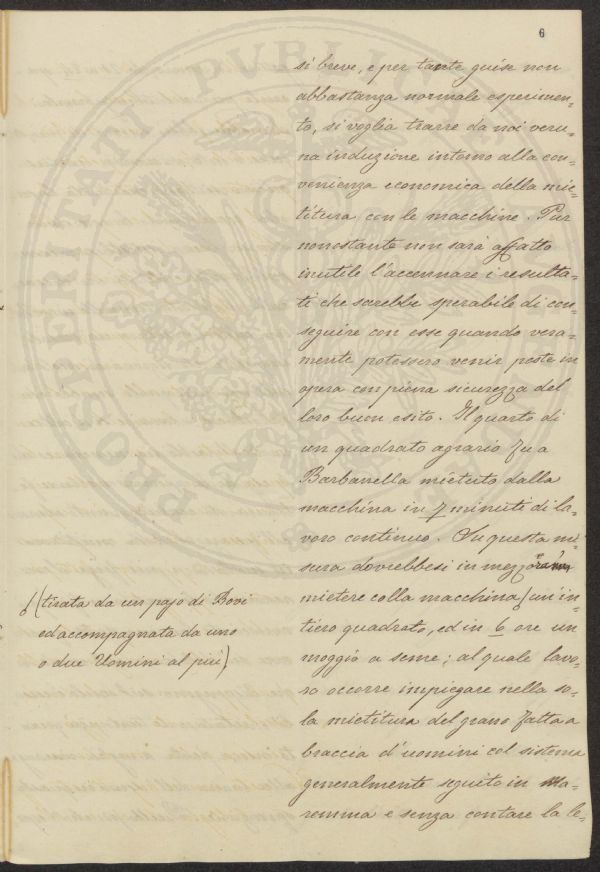 6
si breve, e per tante guise non
abbastanza normale esperimen-
to, si voglia trarre da noi veru-
na induzione intorno alla con-
venienza economica della mie-
titura con le macchine. Pur
nonostante non sarà affatto
inutile l'accennare i resulta-
ti che sarebbe sperabile di con-
seguire con esse quando vera-
mente potessero venir poste in
opera con piena sicurezza del
loro buon esito. Il quarto di
un quadrato agrario fu a
Barbanella mietuto dalla
macchina in 7 minuti di la-
voro continuo. Su questa mi-
sura dovrebbesi in mezz'ora
mietere colla macchina ( un in-
tiero quadrato, ed in 6 ore un
moggio a seme; al quale lavo-
ro occorre impiegare nella so-
la mietitura del grano fatta a
braccia d'uomini col sistema
generalmente seguito in Ma-
remma e senza contare la le-
(tirata da un pajo di Bovi
ed accompagnata da uno
o due Uomini al più)
PROSPERITATI PVBLIC